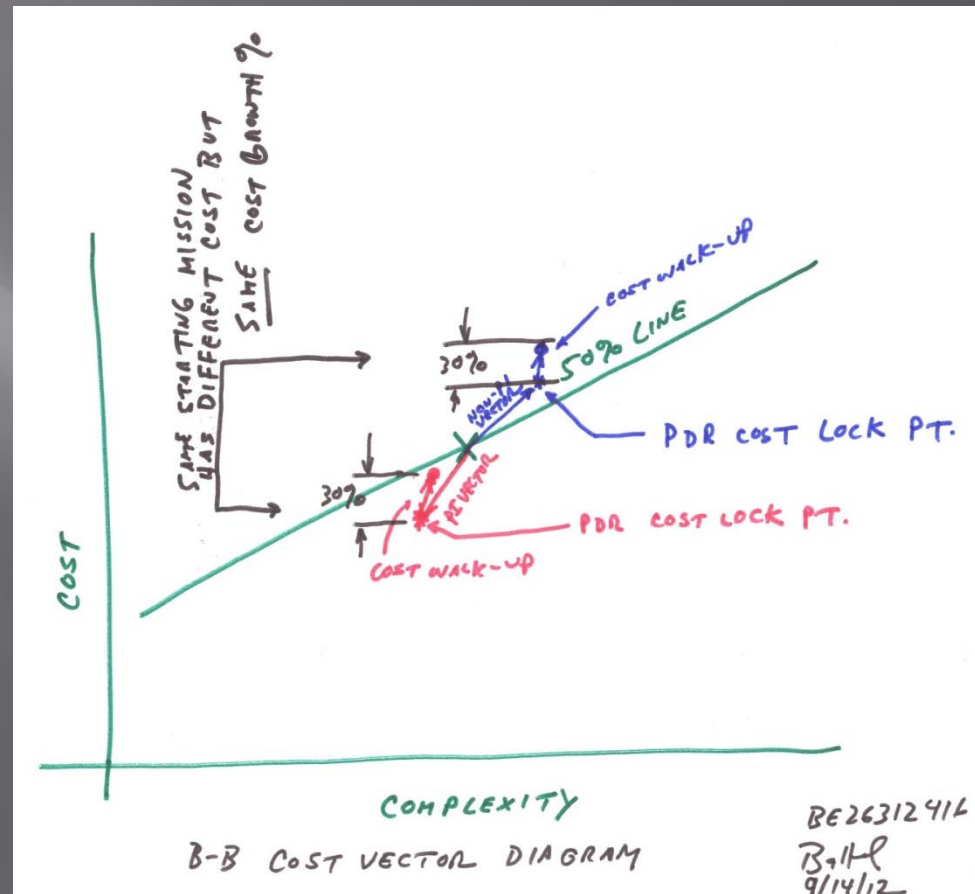 SAME STARTING MISSION
HAS DIFFERENT COST BUT
SAME COST GROWTH %
COST WALK-UP
50% LINE
30%
NON-PI
VECTOR
PDR COST LOCK PT.
30%
PI VECTOR
PDR COST LOCK PT.
COST WALK-UP
COST
COMPLEXITY
B-B COST VECTOR DIAGRAM
9/14/12